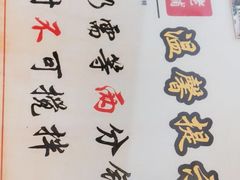 老铺
温馨提
需等两分
不可搅拌